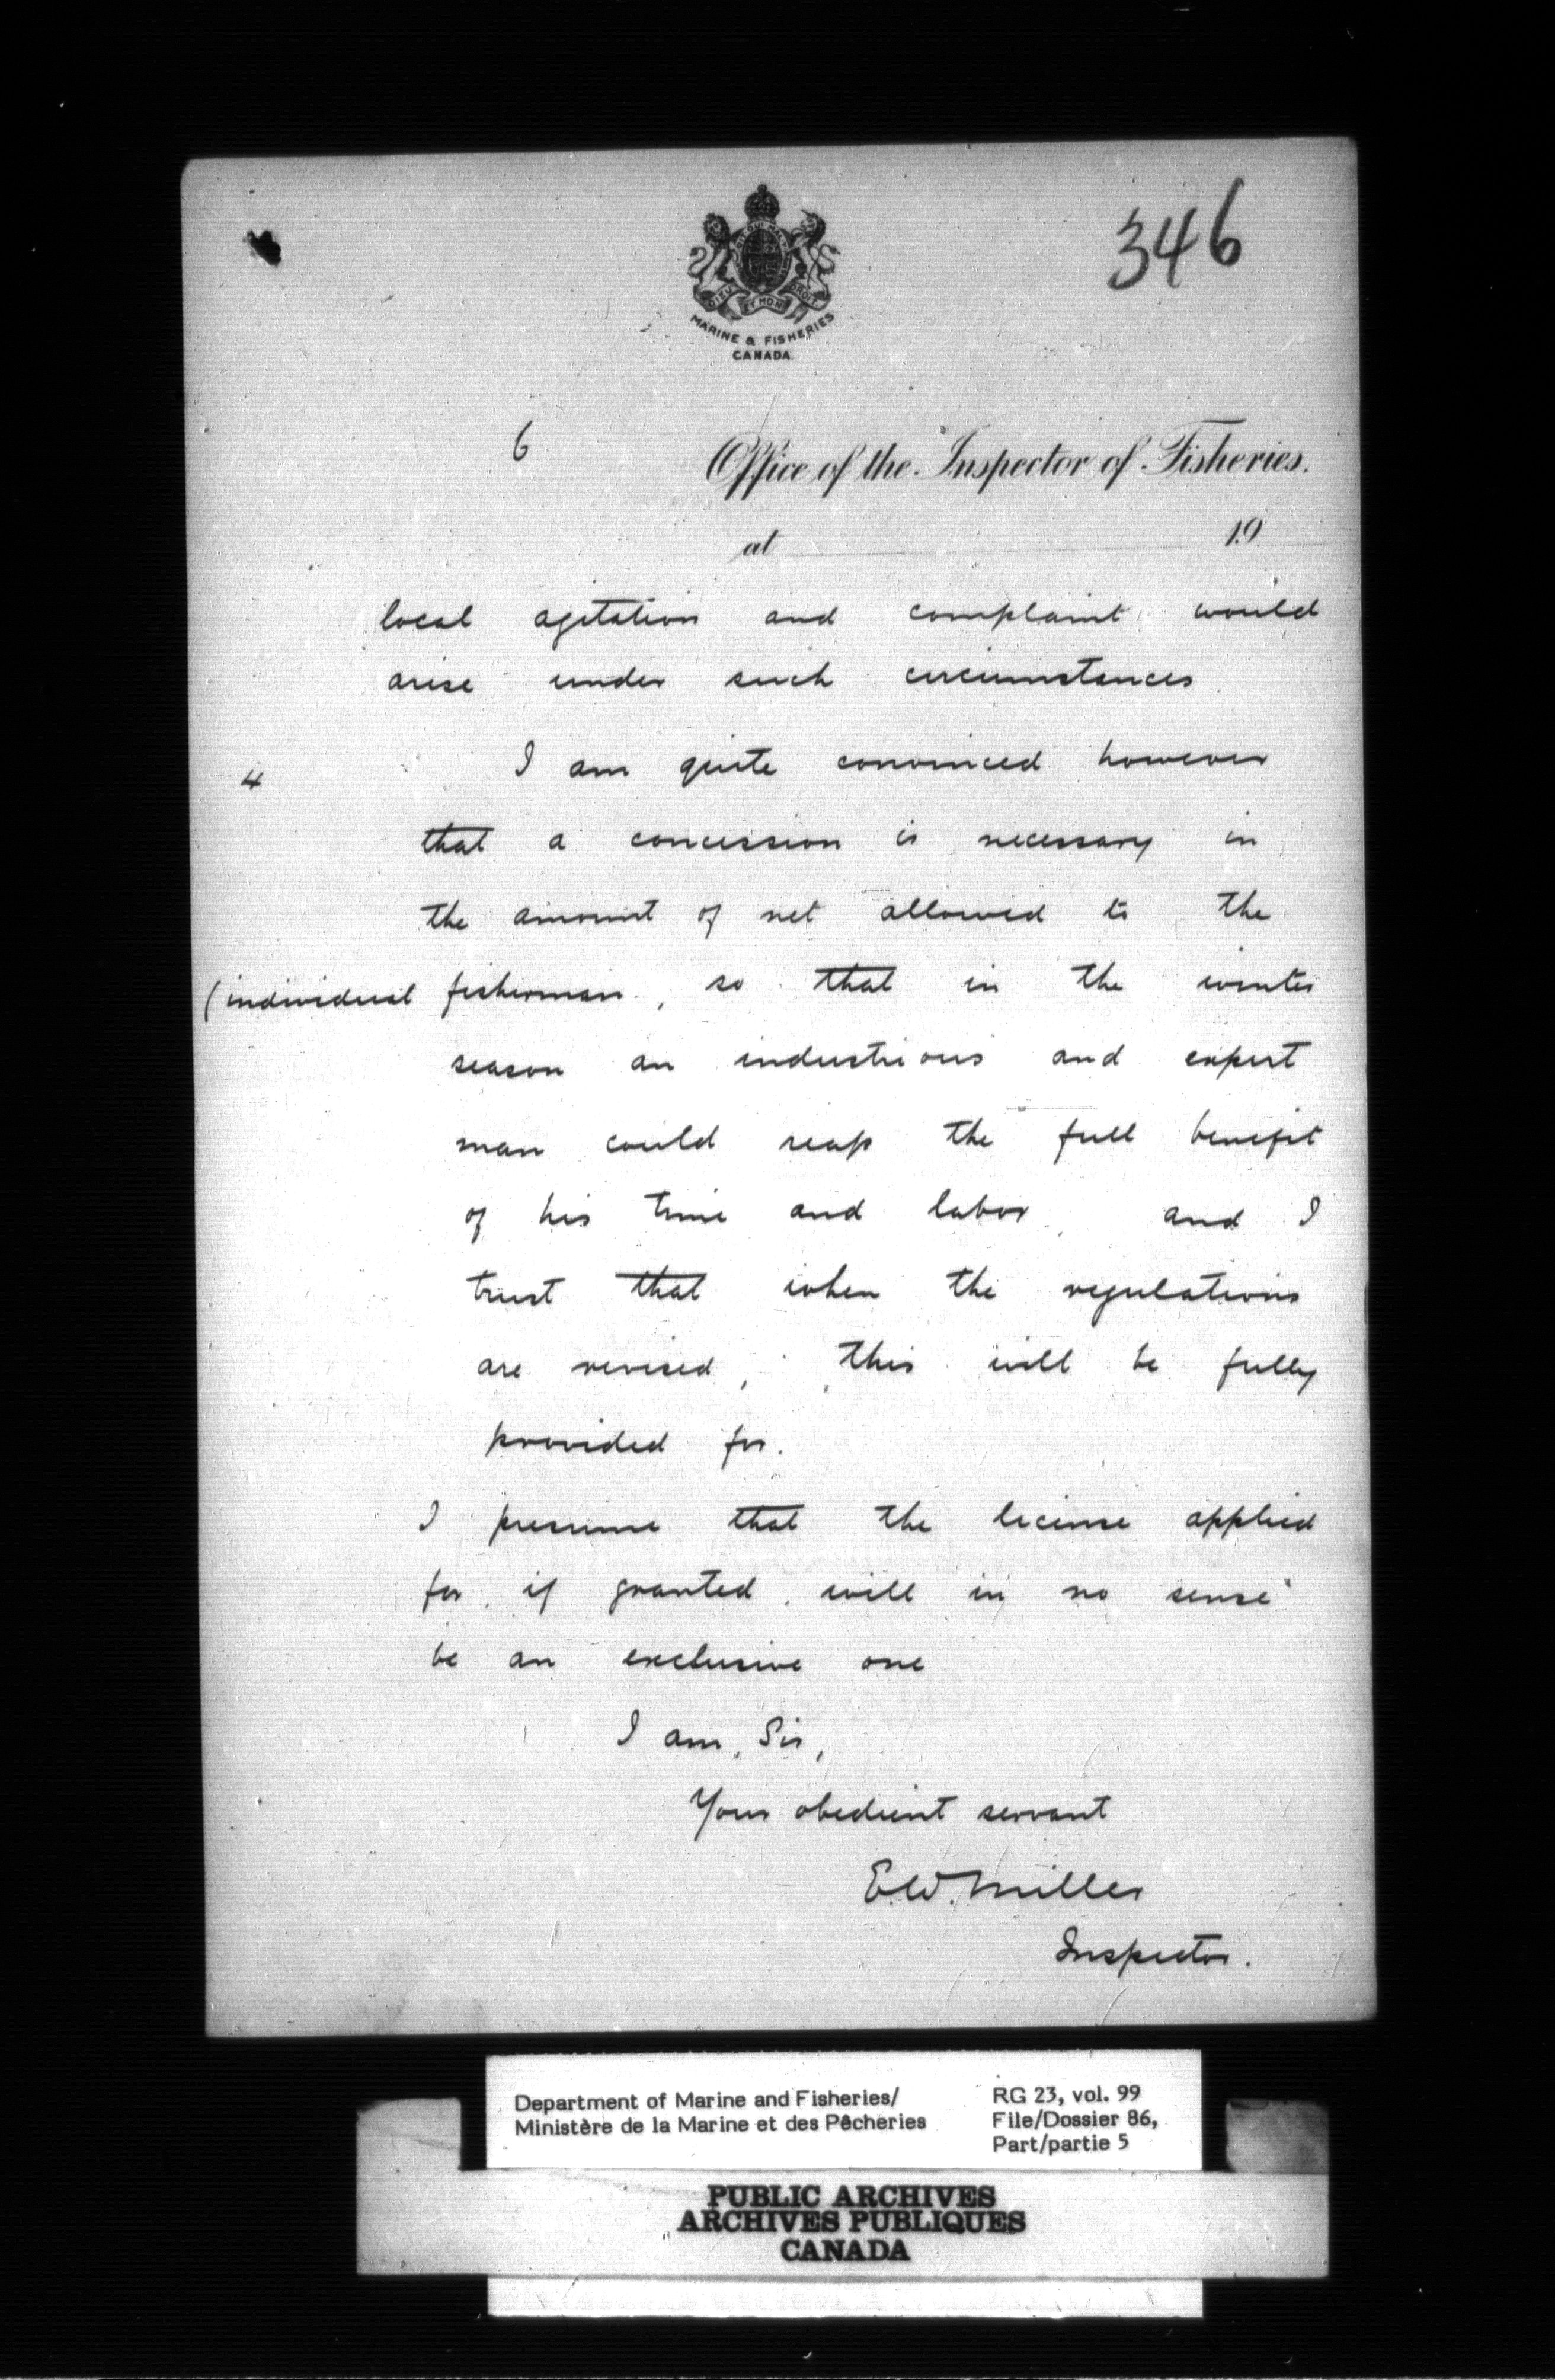 346
DIEU ET MON DROIT
MARINE & FISHERIES
CANADA.
6
Office of the Inspector of Fisheries.
at 19
local agitation and complaint would
arise under such circumstances
4 I am quite convinced however
that a concession is necessary in
the amount of net allowed to the
(individual fisherman, so that in the winter
season an industrious and expert
man could reap the full benefit
of his time and labor, and I
trust that when the regulations
are revised, this will be fully
provided for.
I presume that the license applied
for, if granted, will in no sense
be an exclusive one
I am, Sir,
Your obedient servant
E.W. Miller
Inspector.
Department of Marine and Fisheries/
Ministère de la Marine et des Pêcheries
RG 23, vol. 99
File/Dossier 86,
Part/partie 5
PUBLIC ARCHIVES
ARCHIVES PUBLIQUES
CANADA